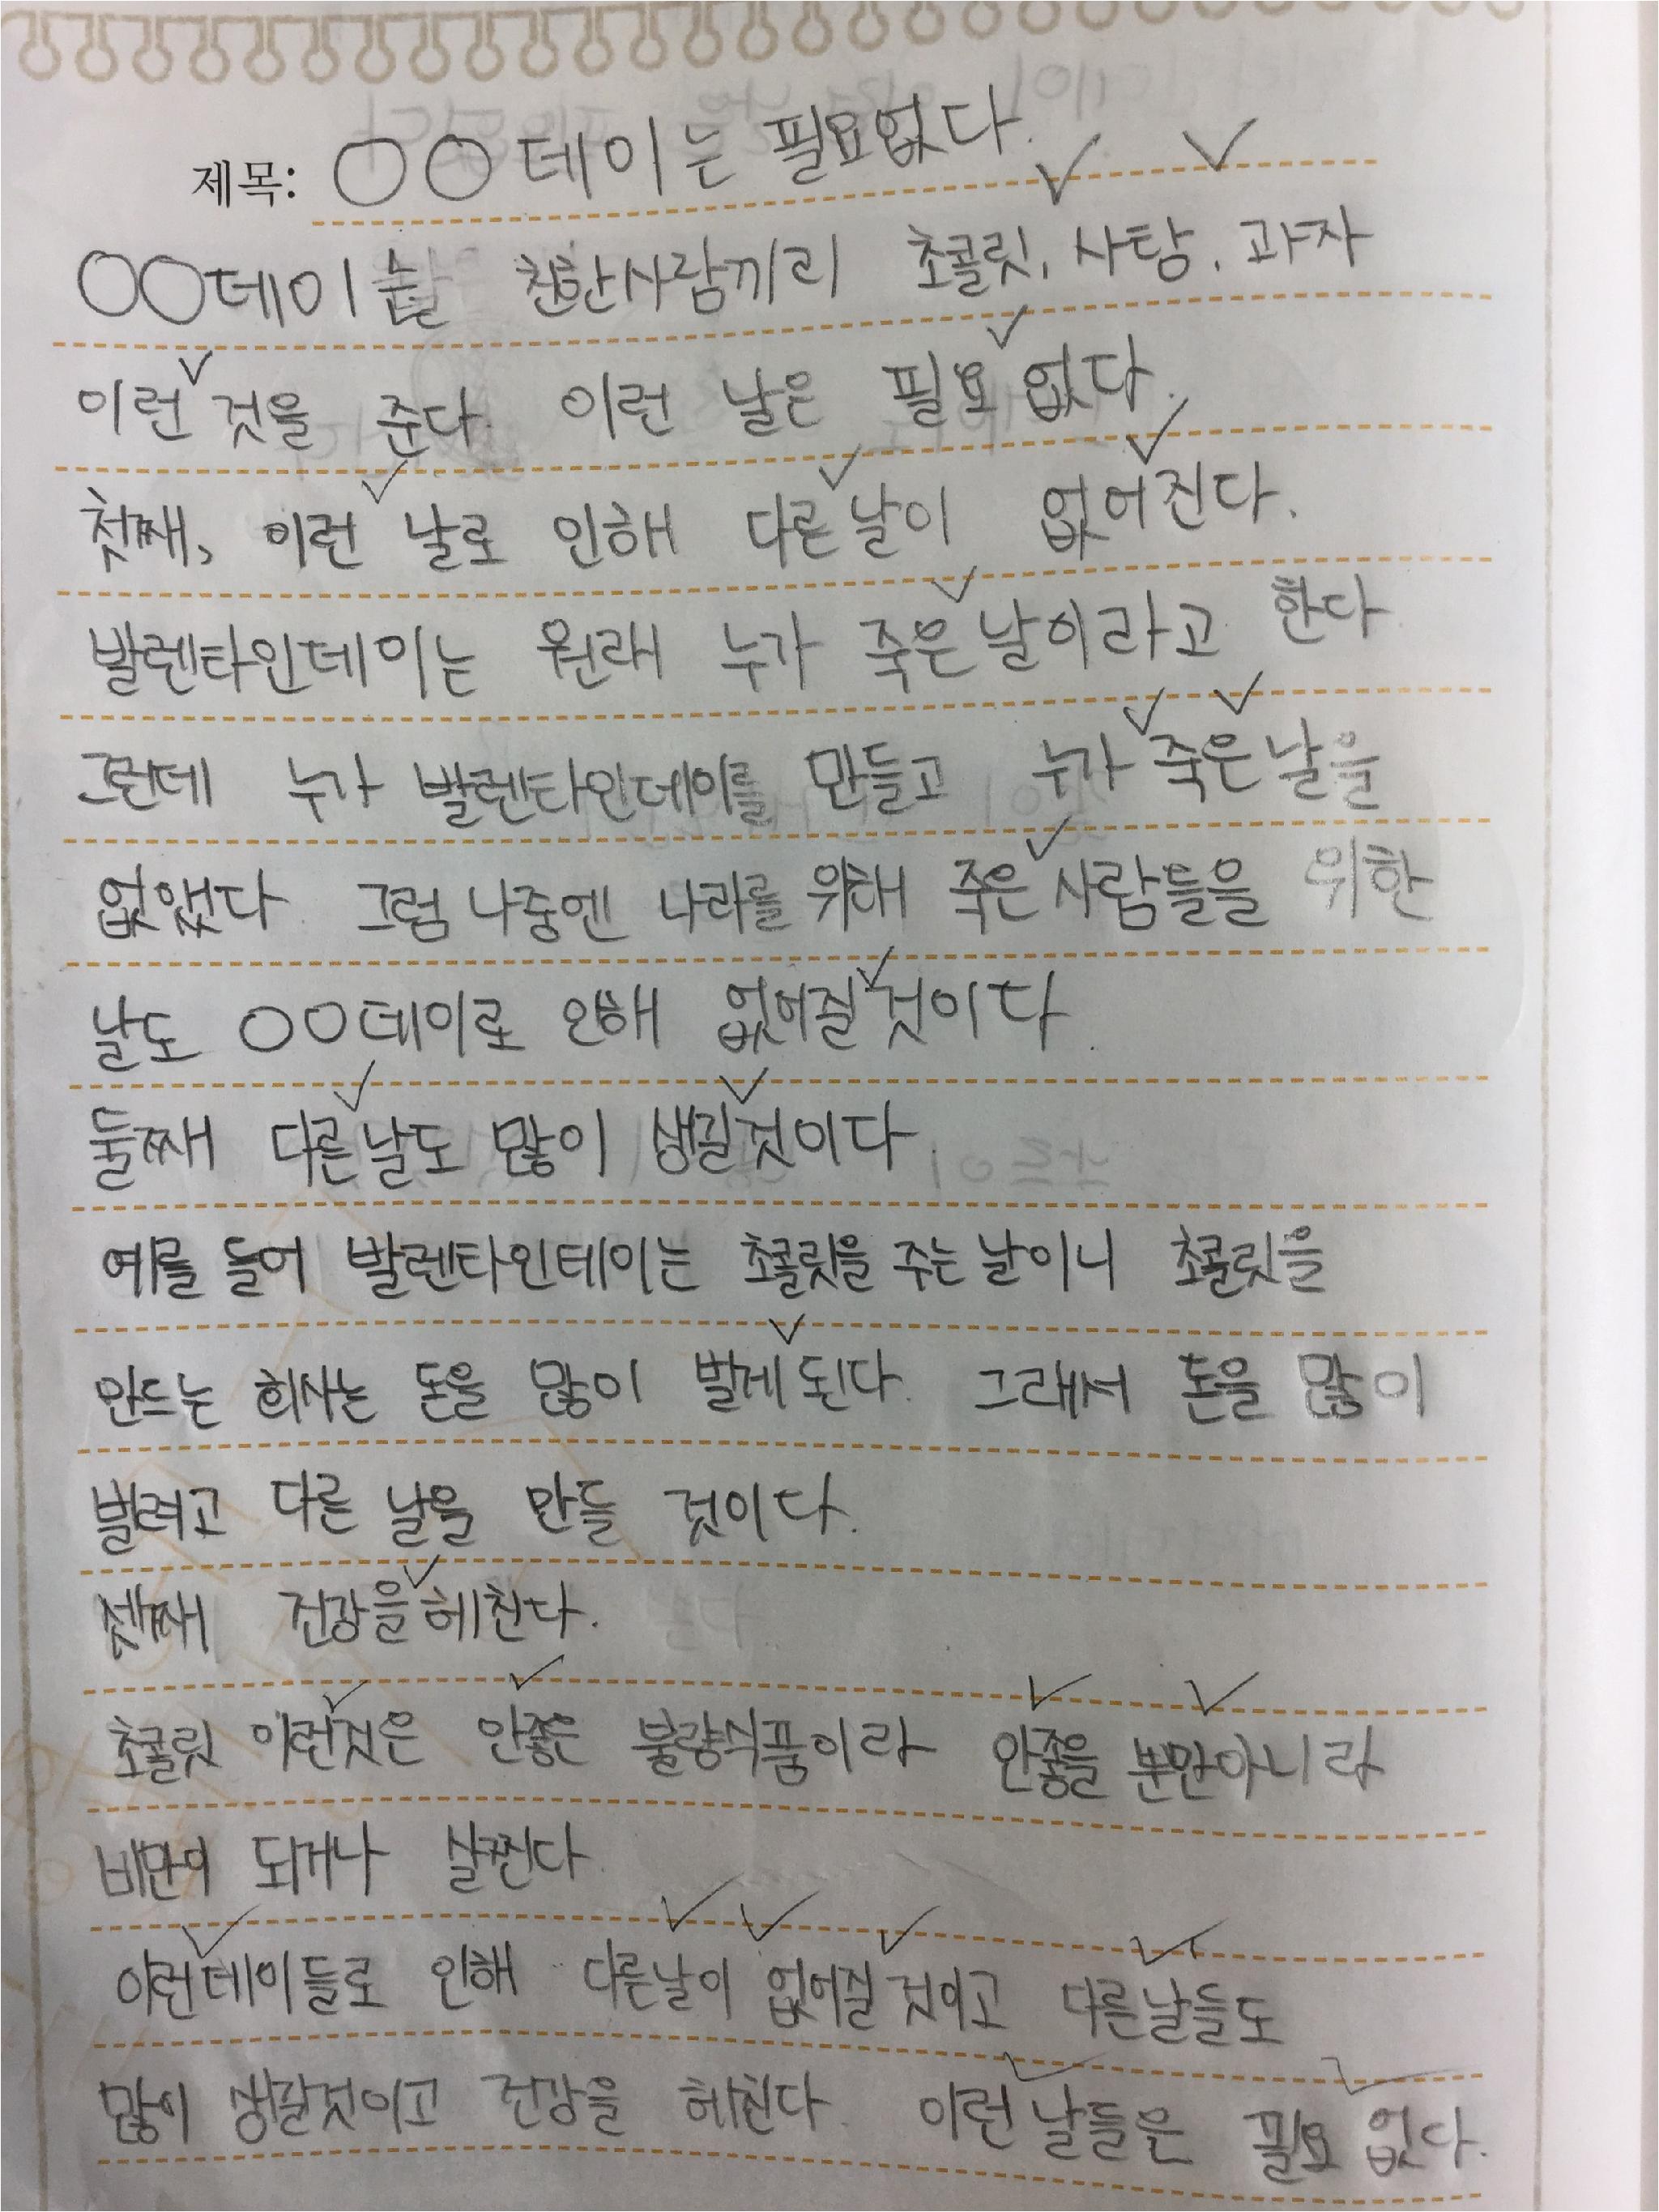 제목: ○○데이는 필요없다.
○○데이는 친한사람끼리 초콜릿, 사탕, 과자
이런 것을 준다. 이런 날은 필요 없다.
첫째, 이런 날로 인해 다른 날이 없어진다.
발렌타인데이는 원래 누가 죽은 날이라고 한다
그런데 누가 발렌타인데이를 만들고 누가 죽은 날을
없앴다. 그럼 나중엔 나라를 위해 죽은 사람들을 위한
날도 ○○데이로 인해 없어질 것이다.
둘째 다른 날도 많이 생길 것이다.
예를 들어 발렌타인데이는 초콜릿을 주는 날이니 초콜릿을
만드는 회사는 돈을 많이 벌게 된다. 그래서 돈을 많이
벌려고 다른 날을 만들 것이다.
셋째 건강을 헤친다.
초콜릿 이런것은 안좋은 불량식품이라 안좋을 뿐만아니라
비만이 되거나 살찐다
이런데이들로 인해 다른날이 없어질 것이고 다른날들도
많이 생길것이고 건강을 헤친다. 이런 날들은 필요 없다.